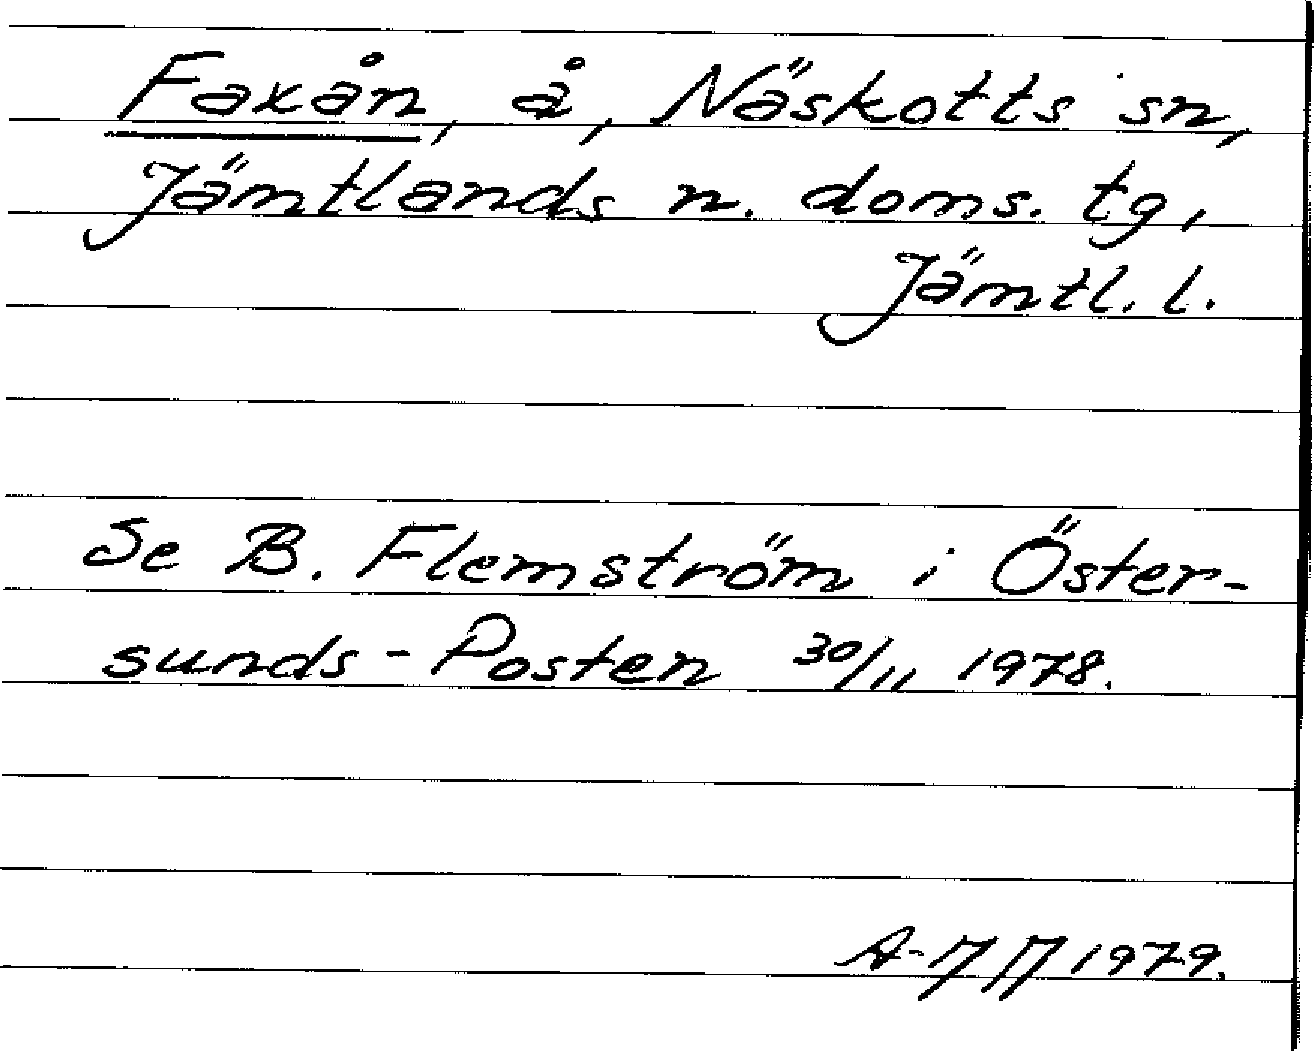 Faxån, å, Näskotts sn,
Jämtlands n. doms. tg,
Jämtl. l.
Se B. Flemström i Öster-
sunds-Posten 30/11 1978.
1979.